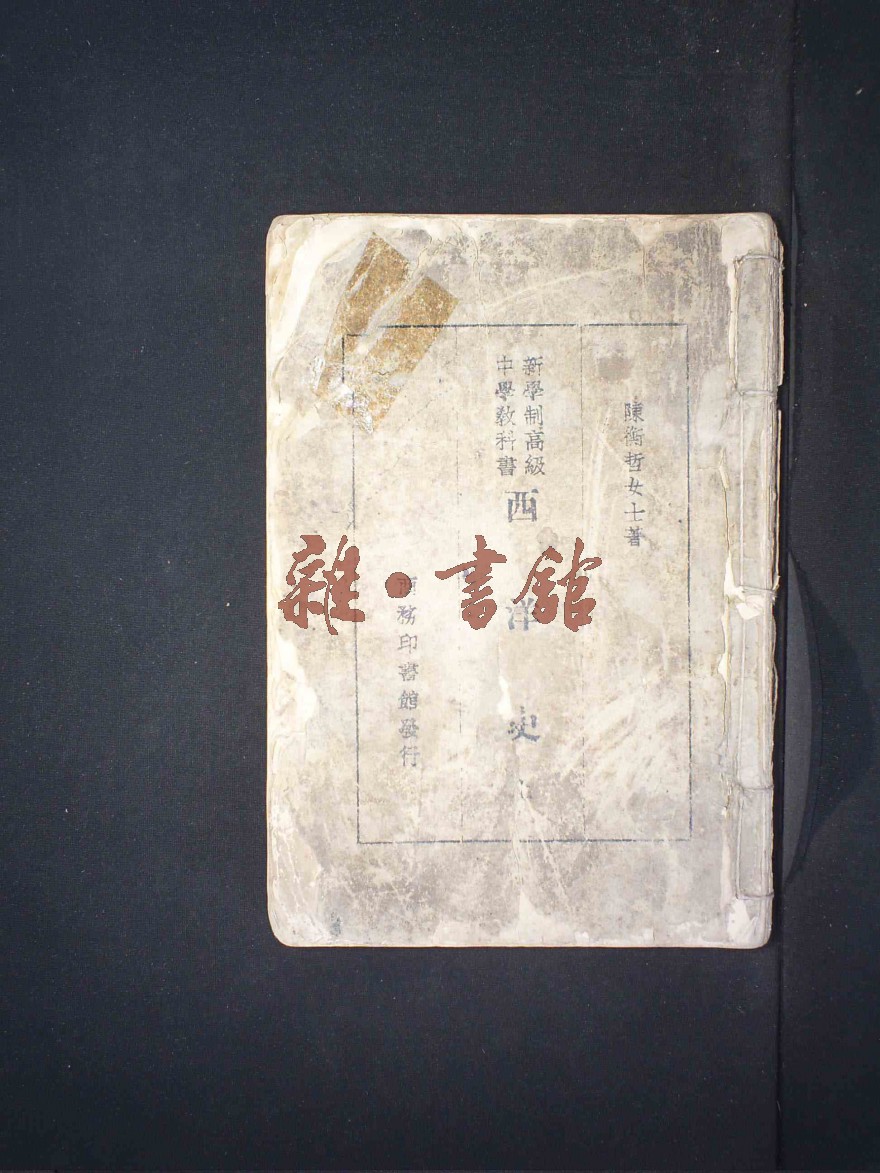 陳衡哲女士著
新學制高級
中學教科書
西洋史
商務印書館發行
雜·書館